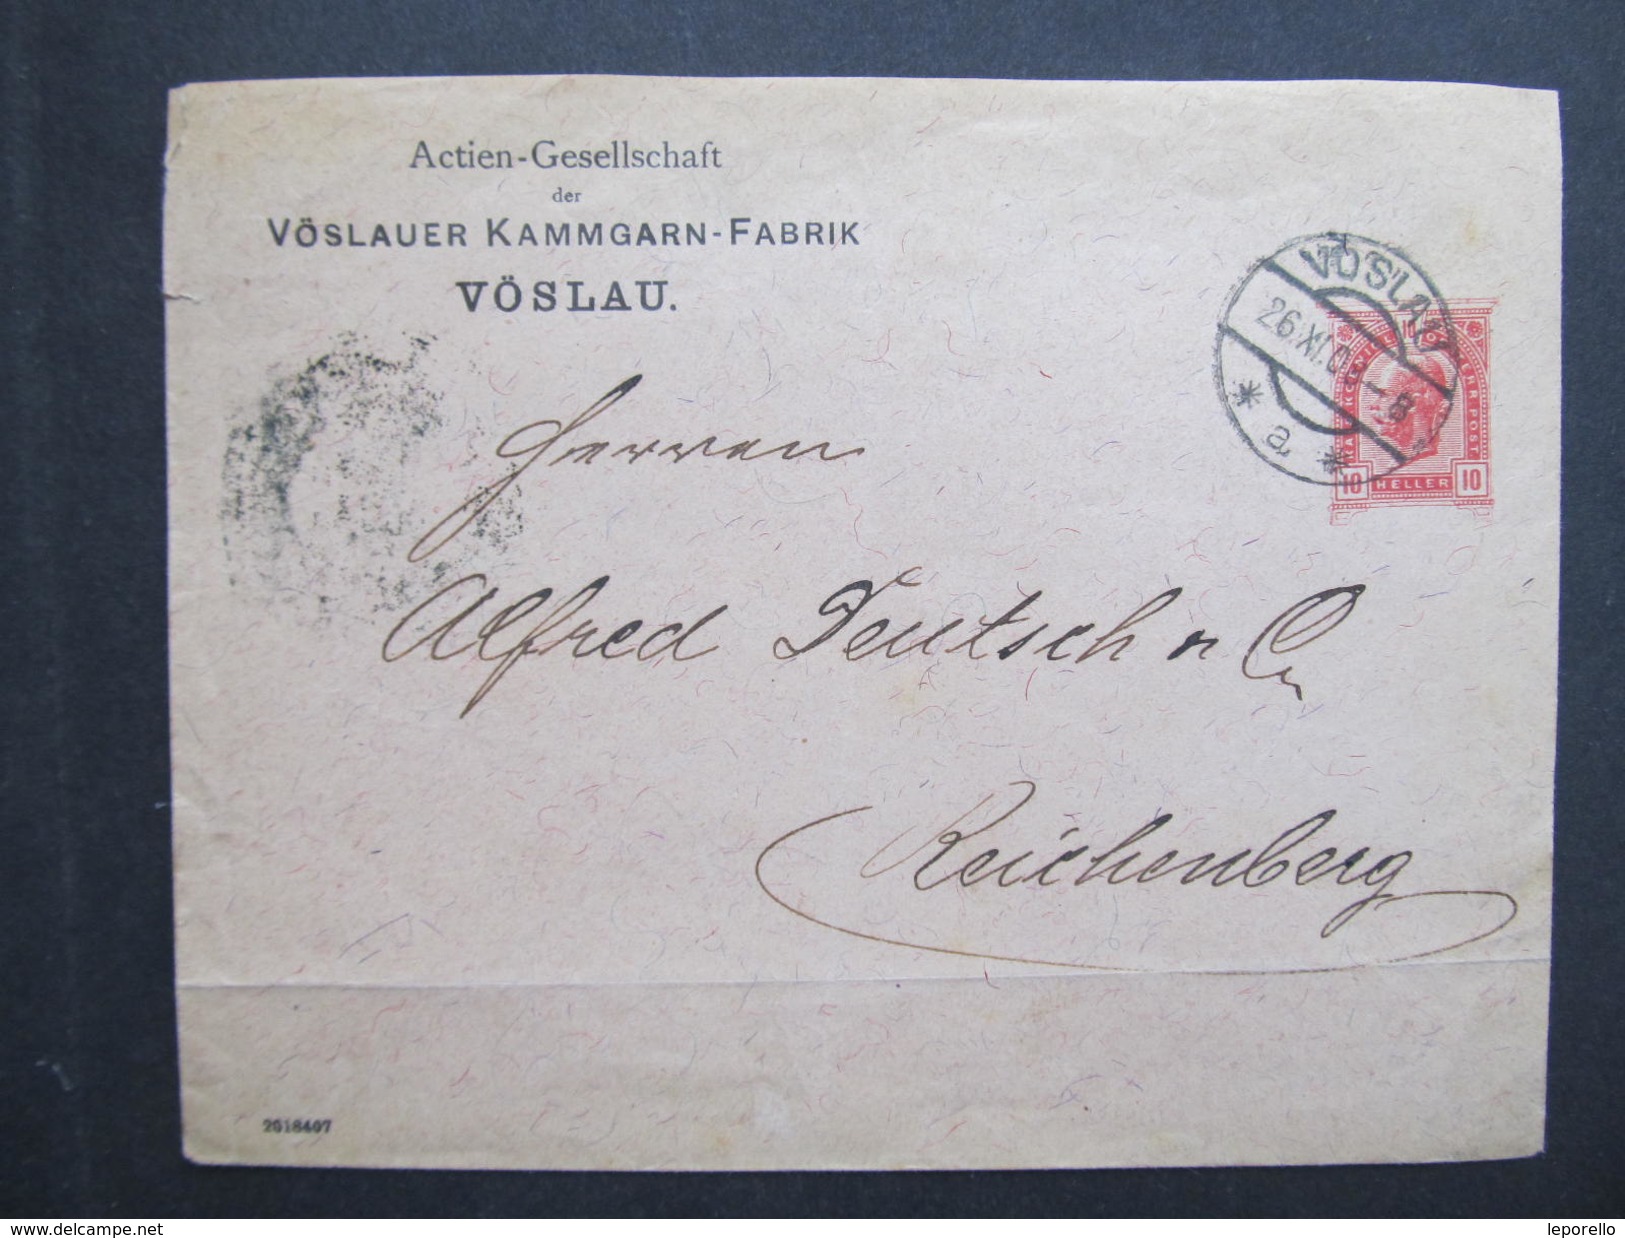 Actien-Gesellschaft
der
VÖSLAUER KAMMGARN-FABRIK
VÖSLAU.
VÖSLAU
26.XI.0
-8
* a *
10 HELLER 10
Herren
Alfred Deutsch & Co
Reichenberg
2018407
www.delcampe.net
leporello